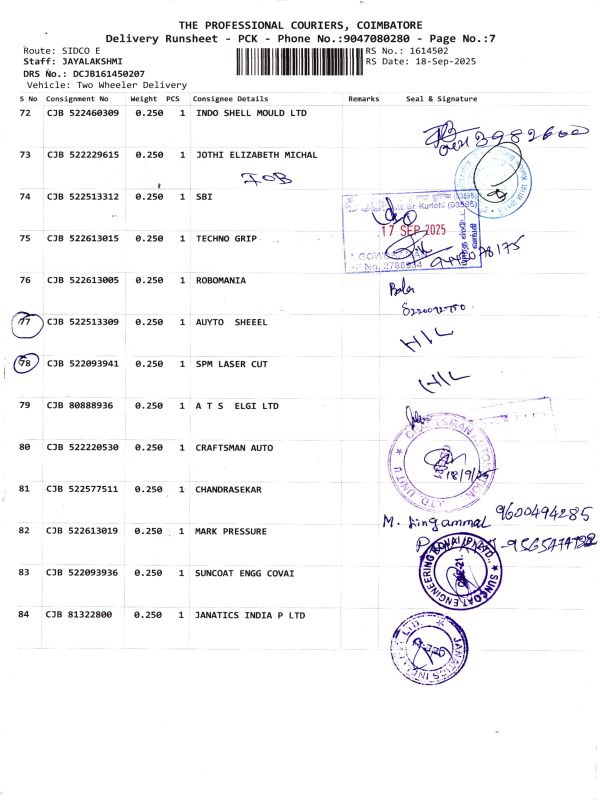 THE PROFESSIONAL COURIERS, COIMBATORE
Delivery Runsheet - PCK - Phone No.:9047080280 - Page No.:7
Route: SIDCO E
RS No.: 1614502
Staff: JAYALAKSHMI
RS Date: 18-Sep-2025
DRS No.: DCJB161450207
Vehicle: Two Wheeler Delivery
S No Consignment No Weight PCS Consignee Details Remarks Seal & Signature
72 CJB 522460309 0.250 1 INDO SHELL MOULD LTD
73 CJB 522229615 0.250 1 JOTHI ELIZABETH MICHAL
IOB
74 CJB 522513312 0.250 1 SBI
Kurichi (93595)
17 SEP 2025
75 CJB 522613015 0.250 1 TECHNO GRIP
76 CJB 522613005 0.250 1 ROBOMANIA
77 CJB 522513309 0.250 1 AUYTO SHEEEL
H/L
78 CJB 522093941 0.250 1 SPM LASER CUT
H/L
79 CJB 80888936 0.250 1 A T S ELGI LTD
80 CJB 522220530 0.250 1 CRAFTSMAN AUTO
18/9/25
81 CJB 522577511 0.250 1 CHANDRASEKAR
M. Lingammal 9600494285
82 CJB 522613019 0.250 1 MARK PRESSURE
83 CJB 522093936 0.250 1 SUNCOAT ENGG COVAI
SUNCOAT ENGINEERING KOVAI (P) LTD.
84 CJB 81322800 0.250 1 JANATICS INDIA P LTD